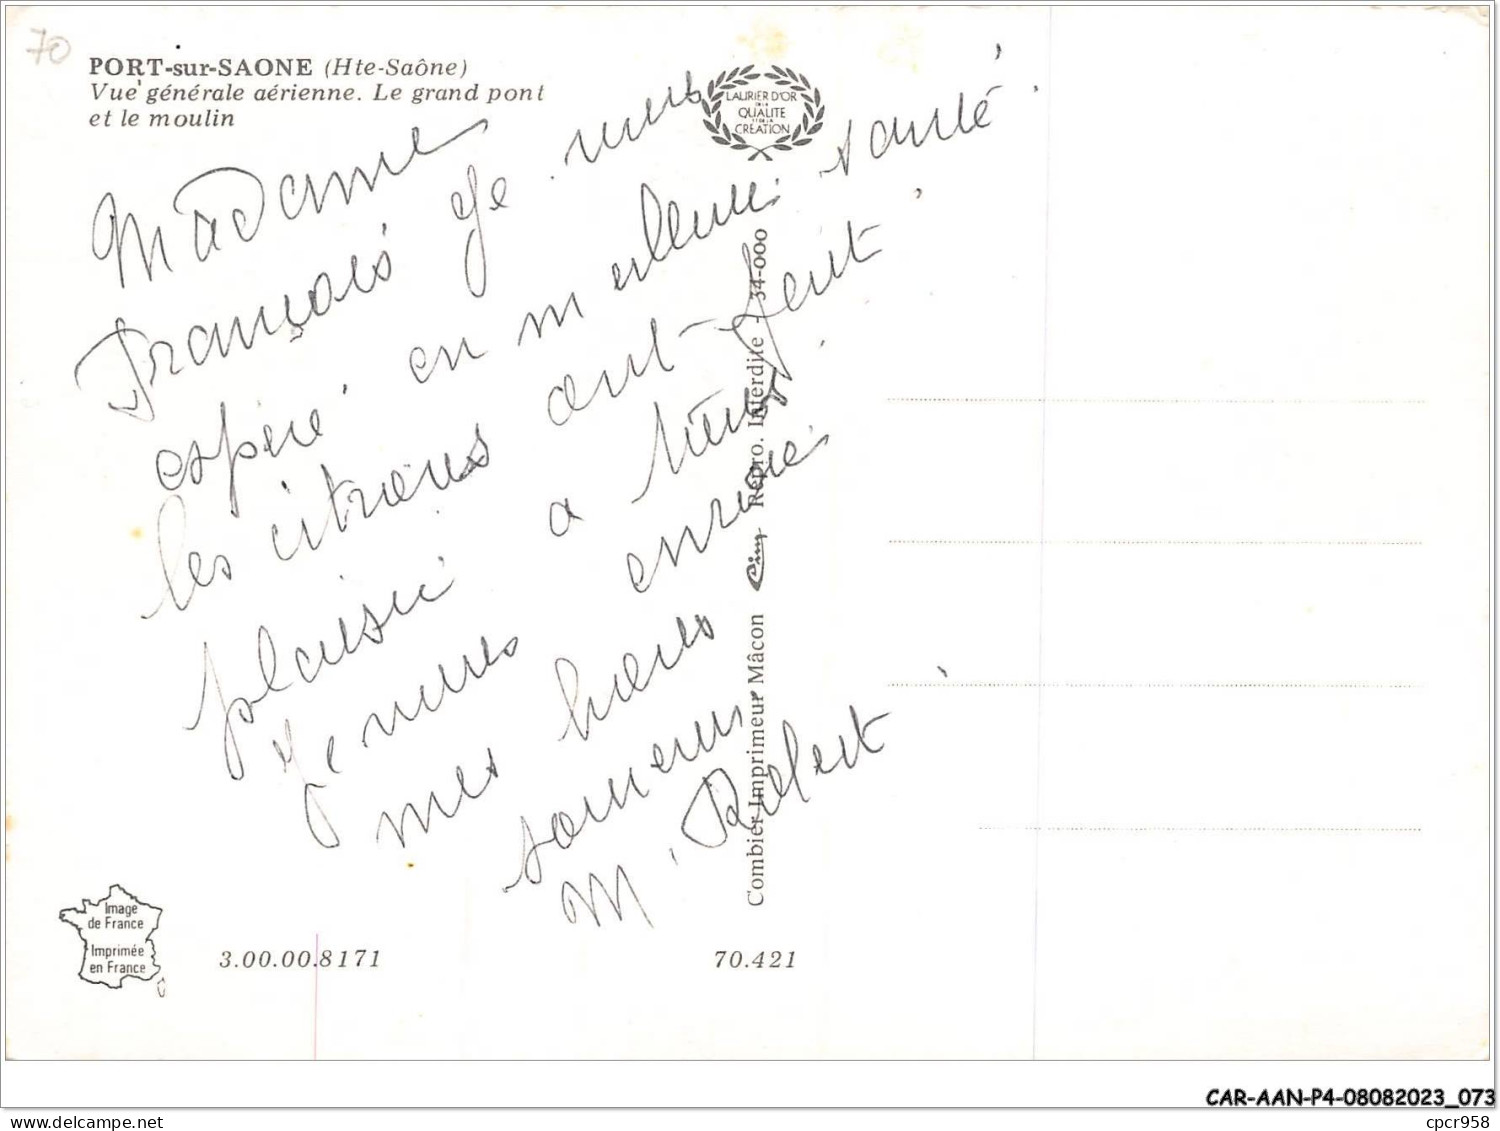 70
PORT-sur-SAONE (Hte-Saône)
Vue générale aérienne. Le grand pont
et le moulin
LAURIER D'OR
DE LA
QUALITE
ET DE LA
CREATION
Madame
François Je vous
espere en meilleure santé
les citrons ont fait
plaisir a
Je vous envoie
mes bons
souvenirs
M.
Combier Imprimeur Mâcon Cim Repro. Interdite - 34-000
Image
de France
Imprimée
en France
3.00.00.8171
70.421
CAR-AAN-P4-08082023_073
www.delcampe.net
cpcr958